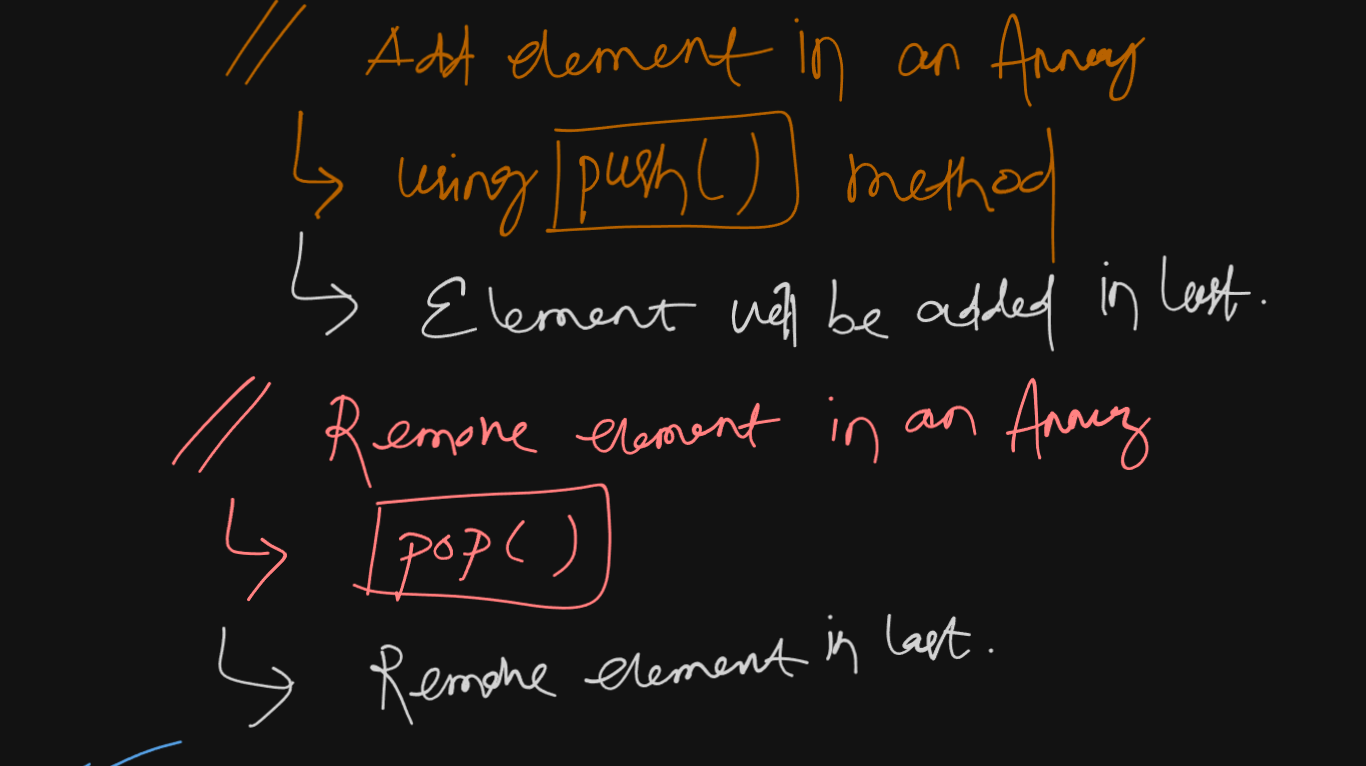 // Add element in an Array
↳ using push() method
↳ Element will be added in last.
// Remove element in an Array
↳ pop()
↳ Remove element in last.